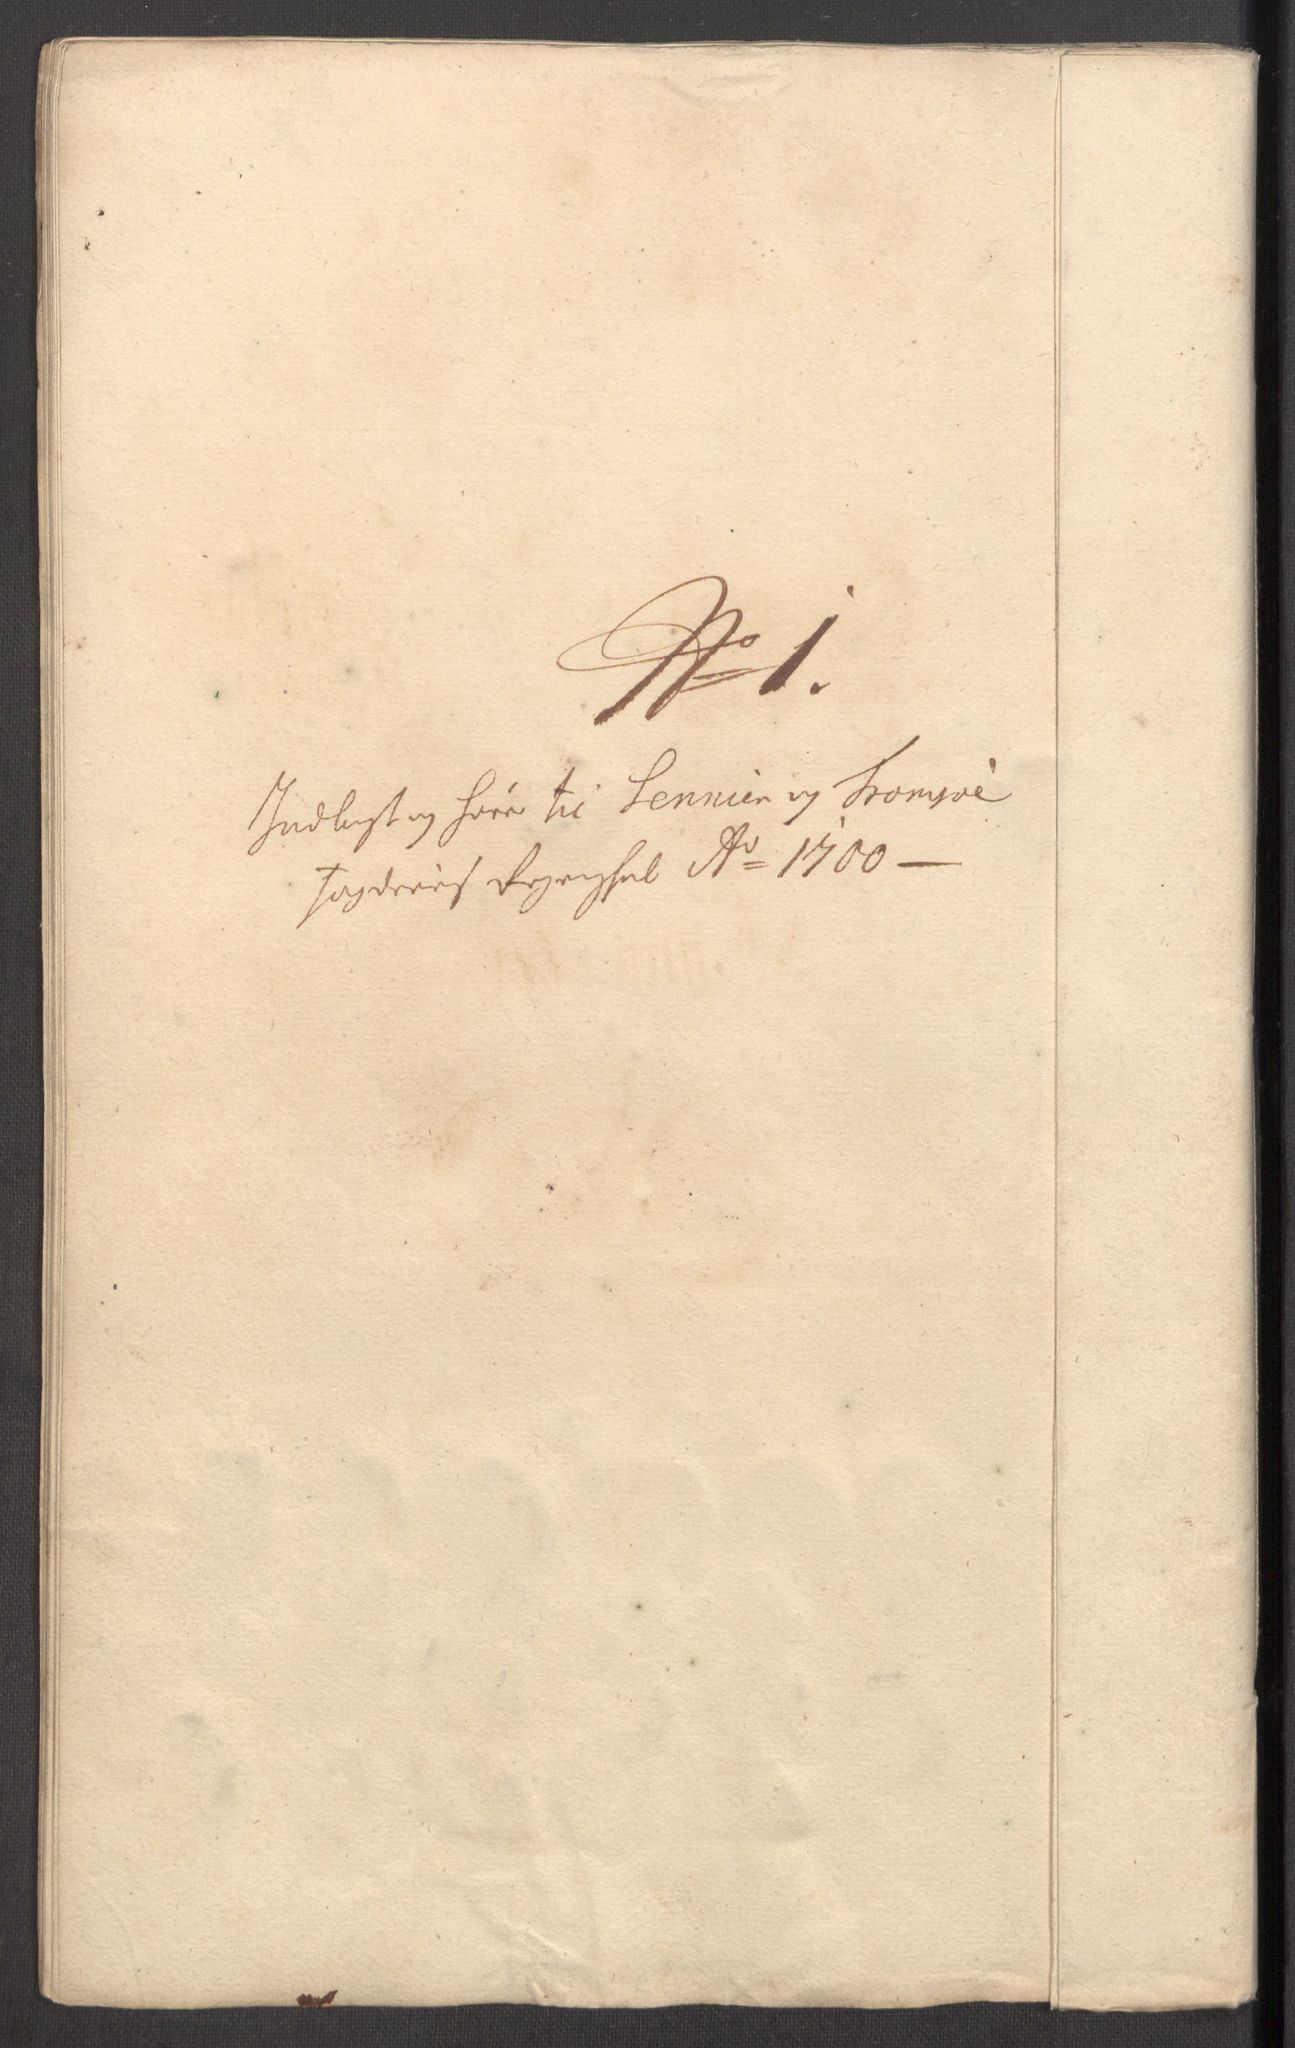 No 1.
Indlagt og hører til Senniens og Tromsøe
fogderies Regenskab Ao 1700 —